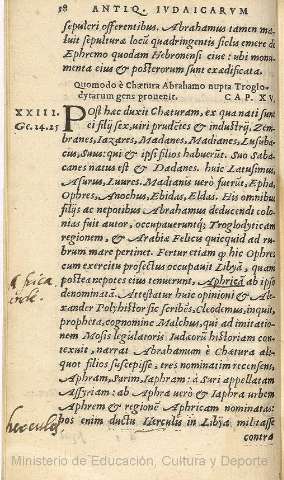 38 ANTIQ. IVDAICARVM
sepulcri offerentibus. Abrahamus tamen ma-
luit sepulturæ locũ quadringentis siclis emere de
Ephremo quodam Hebronensi ciue: ubi monu-
menta eius & posterorum sunt exædificata.
Quomodo è Chætura Abrahamo nupta Troglo-
dytarum gens prouenit. CAP. XV.
XXIII. POst hac duxit Chæturam, ex qua nati sunt
Ge. 24. 25 ei filij sex, uiri prudẽtes & industrij, Zem-
branes, Iazares, Madanes, Madianes, Lusuba-
cus, Suus: qui & ipsi filios habuerũt. Suo Saba-
canes natus est & Dadanes. huic Latusimus,
Asurus, Luures. Madianis uerò fuerũt, Epha,
Ophres, Anochus, Ebidas, Eldas. His omnibus
filijs ac nepotibus Abrahamus deducendi colo-
nias fuit autor, occupaueruntq; Troglodyticam
regionem, & Arabiæ Felicis quicquid ad ru-
brum mare pertinet. Fertur etiam q hic Ophres
cum exercitu profectus occupauit Libyã, quam
postea nepotes eius tenuerunt, Aphricã ab ipso
denominatã. Attestatur huic opinioni & Ale-
xander Polyhistor sic scribẽs, Cleodemus, inquit,
propheta, cognomine Malchus, qui ad imitatio-
nem Mosis legislatoris Iudæorũ historiam con-
texuit, narrat Abrahamum è Chætura ali-
quot filios suscepisse, tres nominatim recensens,
Aphram, Surim, Iaphram: à Suri appellatam
Assyriam: ab Aphra uerò & Iaphra urbem
Aphrem & regionẽ Aphricam nominatas:
hercules
hos enim ductu Herculis in Libya militasse
contra
Ministerio de Educación, Cultura y Deporte